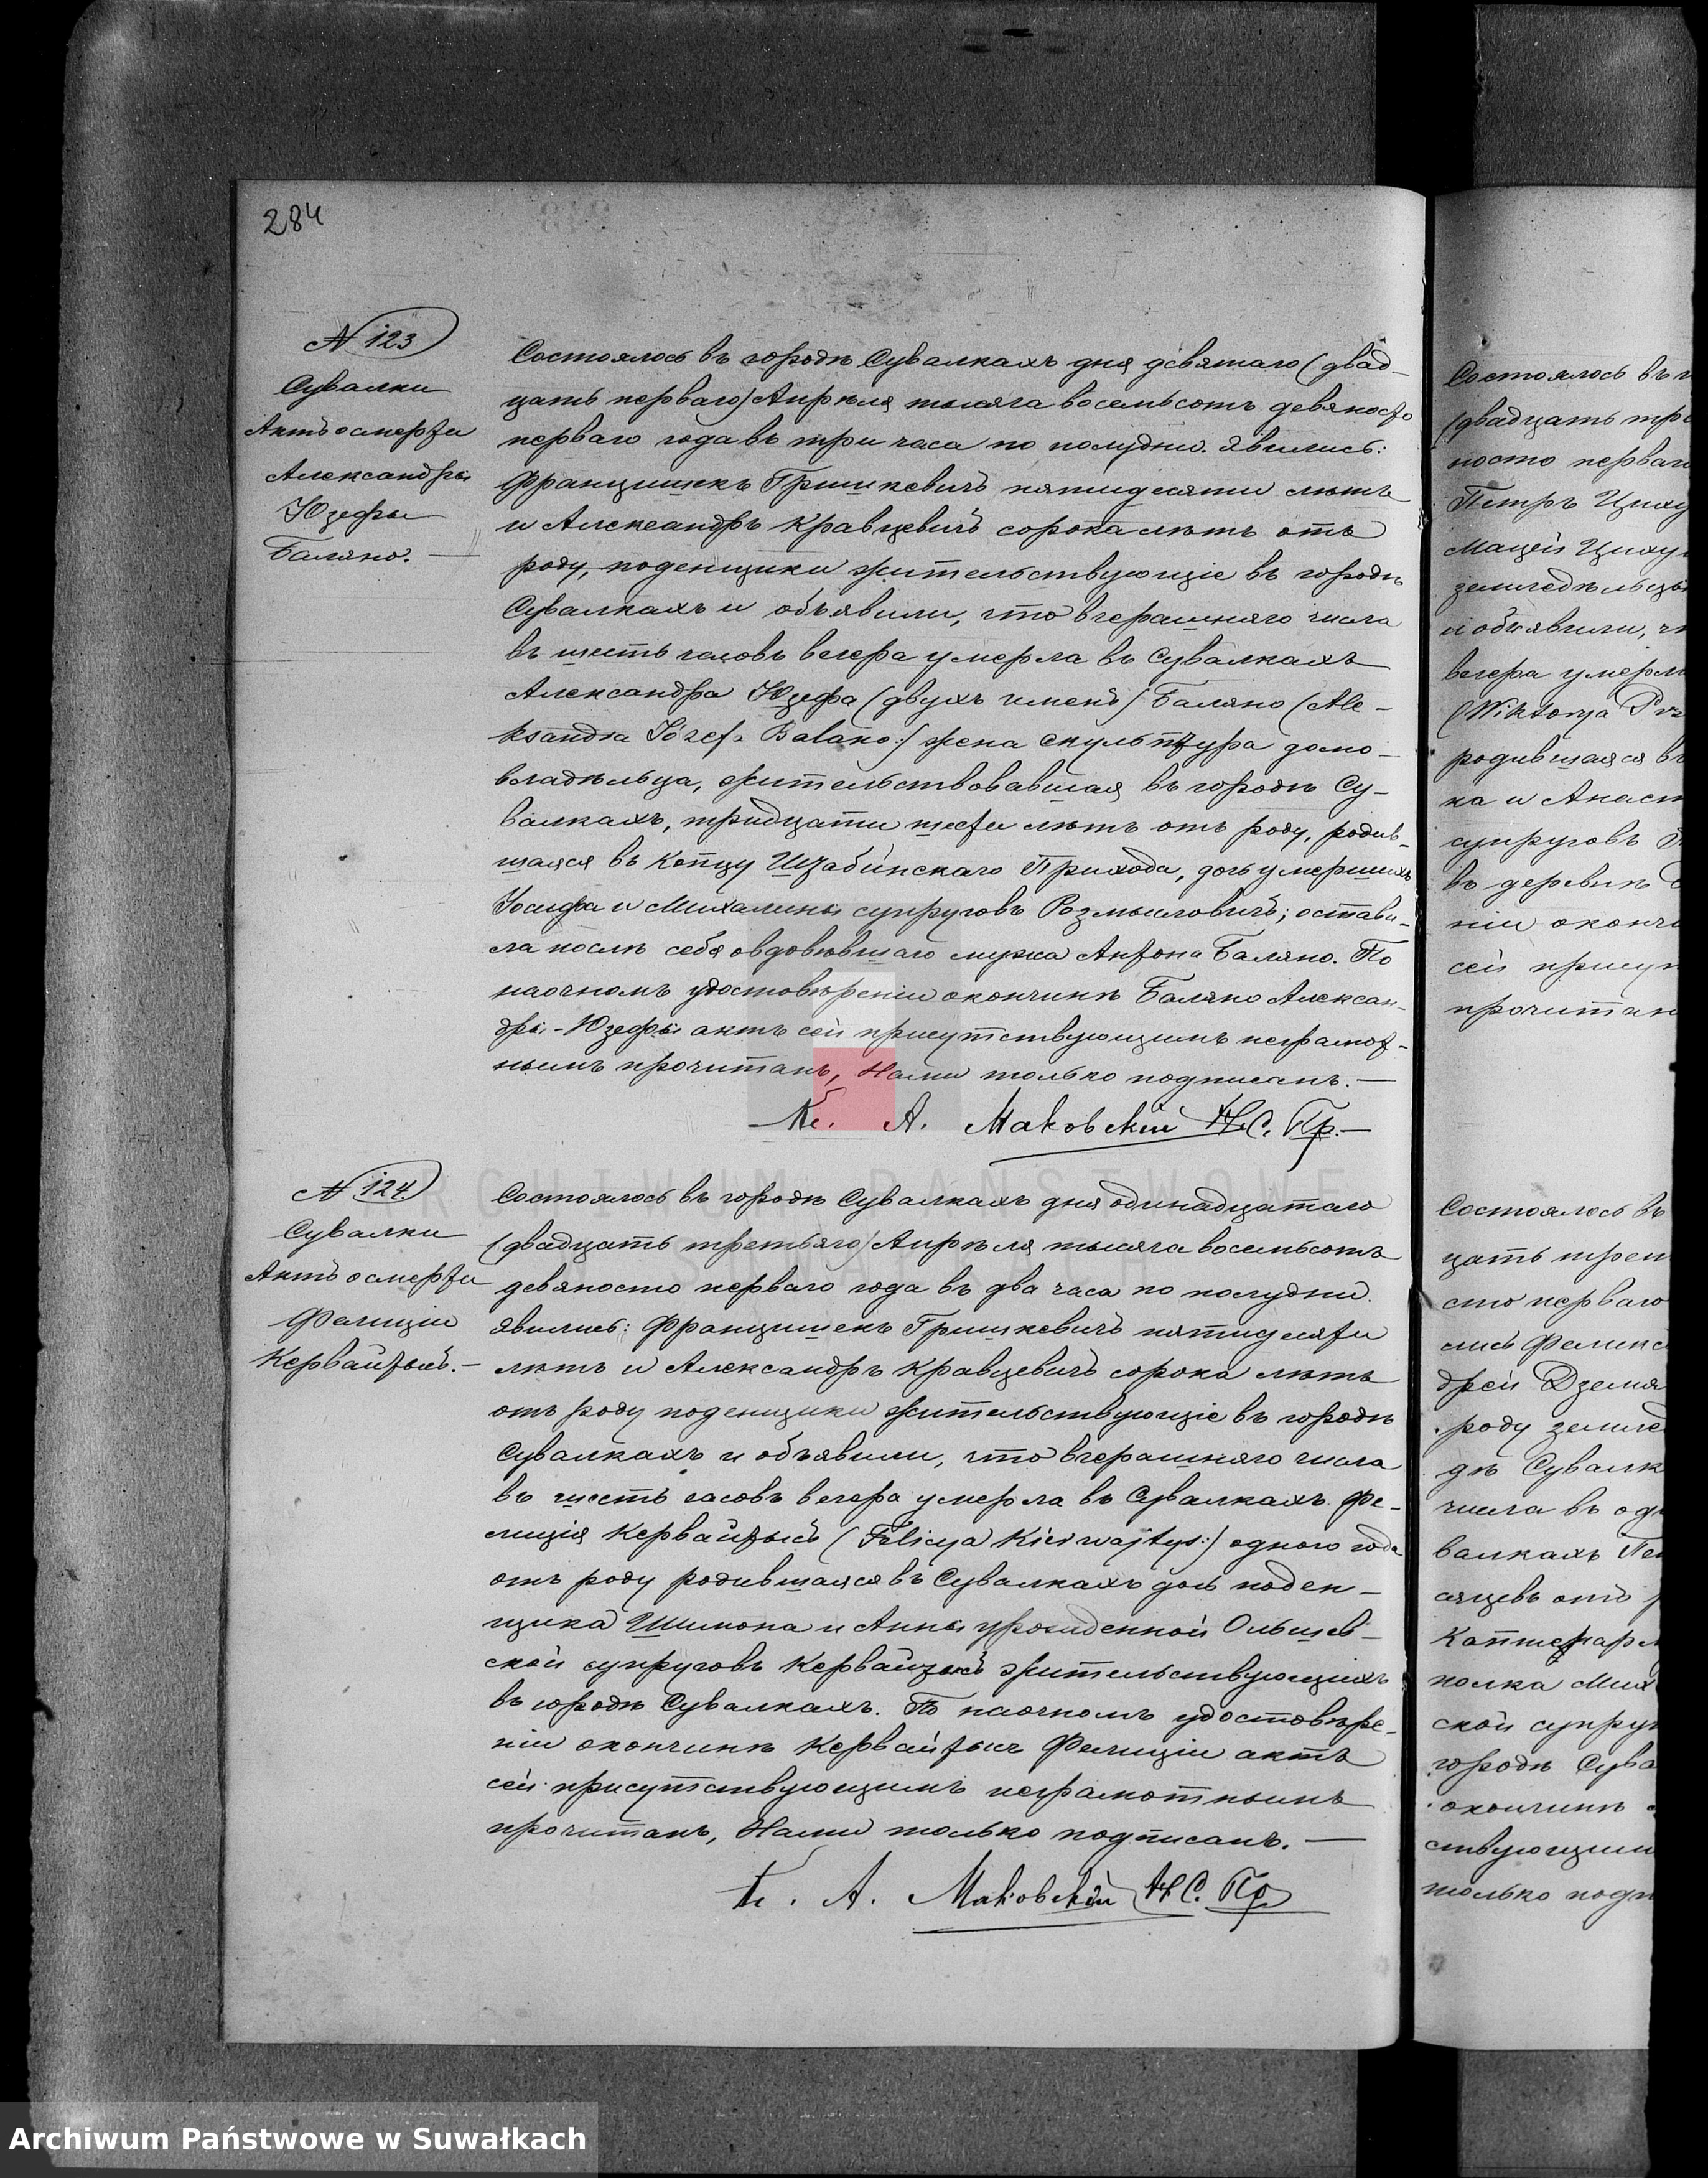 284
№ 123
Сувалки
Актъ о смерти
Александры
Юзефы
Баляно.
Состоялось въ городѣ Сувалкахъ дня девятаго (двад-
цать перваго) Апрѣля тысяча восемьсотъ девяносто
перваго года въ три часа по полудни. Явились:
Францишекъ Гришкевичъ пятидесяти лѣтъ
и Александръ Кравцевичъ сорока лѣтъ отъ
роду, поденщики жительствующіе въ городѣ
Сувалкахъ и объявили, что вчерашняго числа
въ шесть часовъ вечера умерла въ Сувалкахъ
Александра Юзефа (двухъ именъ) Баляно (Ale-
ksandra Józefa Balano:) жена скульптура домо-
владѣльца, жительствовавшая въ городѣ Су-
валкахъ, тридцати шести лѣтъ отъ роду, родив-
шаяся въ Копцу Штабинскаго Прихода, дочь умершихъ
Іосифа и Михалины супруговъ Розмысловичъ; остави-
ла послѣ себя овдовѣвшаго мужа Антона Баляно. По
наочномъ удостовѣреніи о кончинѣ Баляно Алексан-
дры-Юзефы актъ сей присутствующимъ неграмот-
нымъ прочитанъ, Нами только подписанъ.
Кс. А. Маковскій Н. С. Пр.
№ 124
Сувалки
Актъ о смерти
Фелиціи
Кервайтысъ.
Состоялось въ городѣ Сувалкахъ дня одинадцатаго
(двадцать третьяго) Апрѣля тысяча восемьсотъ
девяносто перваго года въ два часа по полудни.
Явились: Францишекъ Гришкевичъ пятидесяти
лѣтъ и Александръ Кравцевичъ сорока лѣтъ
отъ роду поденщики жительствующіе въ городѣ
Сувалкахъ и объявили, что вчерашняго числа
въ шесть часовъ вечера умерла въ Сувалкахъ Фе-
лиція Кервайтысъ (Felicya Kierwajtys:) одного года
отъ роду родившаяся въ Сувалкахъ дочь поден-
щика Шимона и Анны урожденной Ольшев-
ской супруговъ Кервайтысъ жительствующихъ
въ городѣ Сувалкахъ. По наочномъ удостовѣре-
ніи о кончинѣ Кервайтысъ Фелиціи актъ
сей присутствующимъ неграмотнымъ
прочитанъ, Нами только подписанъ.
Кс. А. Маковскій Н. С. Пр
Состоялось въ
(двадцать тре
носто перваго
Петръ Циху
Мацей Циху
земледѣльцы
и объявили, ч
вечера умерл
(Wiktorya Prz
родившаяся въ
ка и Анаст
супруговъ
въ деревнѣ
ніи о кончи
сей присут
прочитан
Состоялось въ
цать трет
сто перваго
лись Феликс
дрей Дземя
роду землед
дѣ Сувалк
числа въ од
валкахъ
сяцевъ отъ р
полка Мих
ской супру
городѣ Сува
о кончинѣ
ствующим
только подп
ARCHIWUM PAŃSTWOWE
W SUWAŁKACH
Archiwum Państwowe w Suwałkach